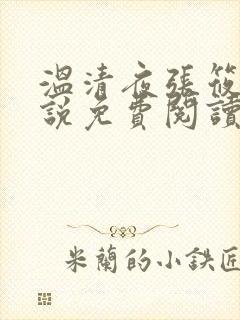 溫清夜張筱
說免費閱讀
米蘭的小鉄匠